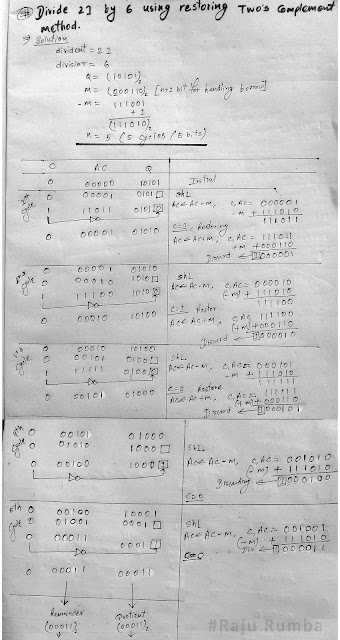 Divide 21 by 6 using restoring Two's complement
method.
⇒ Solution
divident = 21
division = 6
Q = (10101)₂
M = (000110)₂ [n+1 bit for handling borrow]
-M = 111001
+ 1
(111010)₂
n = 5 (5 cycles / 5 bits)
C AC Q
0 00000 10101 Initial
1st cycle
0 00001 0101□ ShL
AC ← AC-M, C,AC = 000001
-M + 111010
111011
1 11011 0101□
C=1, Restoring
0 00001 01010 AC ← AC+M, C,AC = 111011
+M + 000110
Discard ← 1000001
2nd cycle
0 00001 01010
0 00010 1010□ ShL
AC ← AC-M, C,AC = 000010
(-M) + 111010
111100
1 11100 1010□
C=1 Restor
0 00010 10100 AC ← AC+M, C,AC 111100
(+M) + 000110
Discard ← 1000010
3rd cycle
0 00010 10100
0 00101 0100□ ShL
AC ← AC-M, C,AC = 000101
-M + 111010
111111
1 11111 0100□
C=1 Restore
0 00101 01000 AC ← AC+M, C,AC = 111111
(+M) + 000110
Discard ← 1000101
4th cycle
0 00101 01000
0 01010 1000□ ShL
AC ← AC-M, C,AC = 001010
(-M) + 111010
0 00100 1000 1 Discarding ← 1000100
C=0
5th cycle
0 00100 10001
0 01001 0001□ ShL
AC ← AC-M, C,AC = 001001
(-M) + 111010
0 00011 0001 1
C=0 Dis ← 1000011
0 00011 00011
Reminder Quotient
(00011)₂ (00011)₂
#Raju Rumba